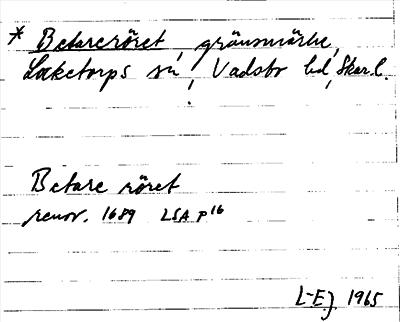 * Betareröret, gränsmärke,
Locketorps sn, Vadsbo hd, Skar.l.
Betare röret
renov. 1689 LSA P16
L-E.J. 1965